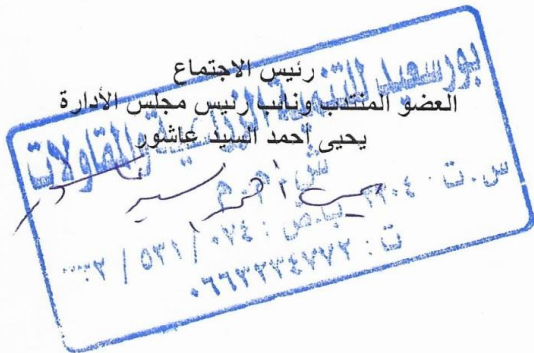 رئيس الاجتماع
العضو المنتدب ونائب رئيس مجلس الأدارة
يحيى أحمد السيد عاشور
بورسعيد للتنمية الزراعية والمقاولات
ش.م.م
س.ت
ت : ٠٦٦٣٢٣٤٧٧٢